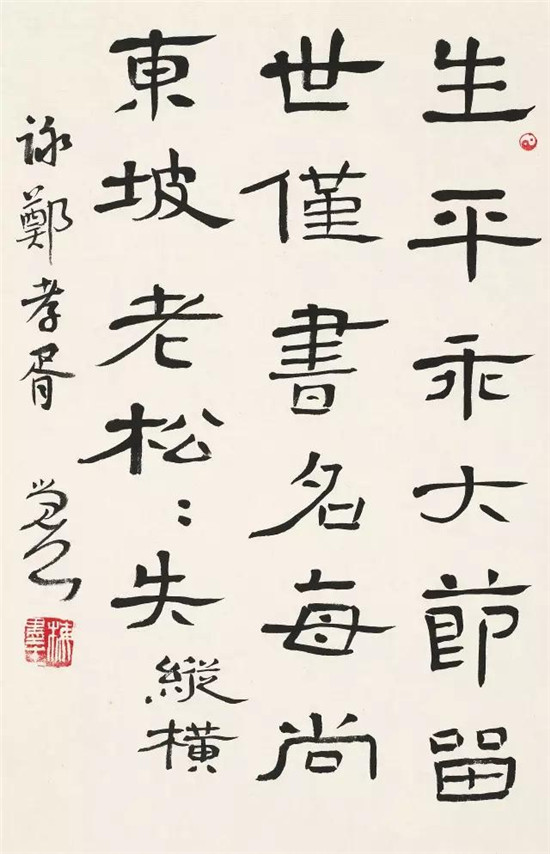 生平乖大節留
世僅書名每尚
東坡老松〻失縱橫
詠鄭孝胥